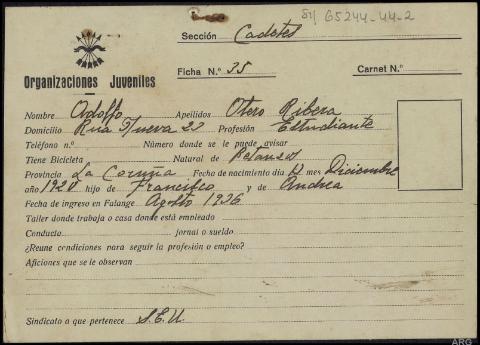 SM 65244-44-2
Sección Cadetes
Organizaciones Juveniles
Ficha N.º 35 Carnet N.º
Nombre Adolfo Apellidos Otero Ribera
Domicilio Rua Nueva 23 Profesión Estudiante
Teléfono n.º Número donde se le puede avisar
Tiene Bicicleta Natural de Betanzos
Provincia La Coruña Fecha de nacimiento día 12 mes Diciembre
año 1920 hijo de Francisco y de Andrea
Fecha de ingreso en Falange Agosto 1936
Taller donde trabaja o casa donde está empleado
Conducta jornal o sueldo
¿Reune condiciones para seguir la profesión o empleo?
Aficiones que se le observan
Sindicato a que pertenece S.E.U.
ARG